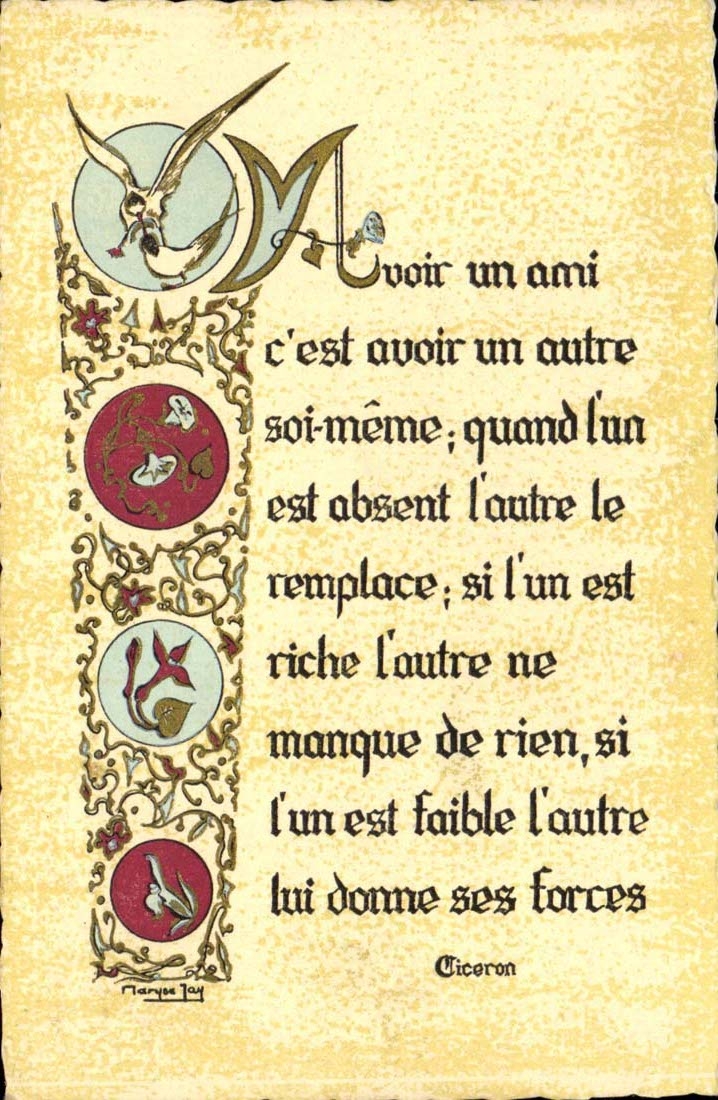 Avoir un ami
c'est avoir un autre
soi-même; quand l'un
est absent l'autre le
remplace; si l'un est
riche l'autre ne
manque de rien, si
l'un est faible l'autre
lui donne ses forces
Ciceron
Maryse Jay